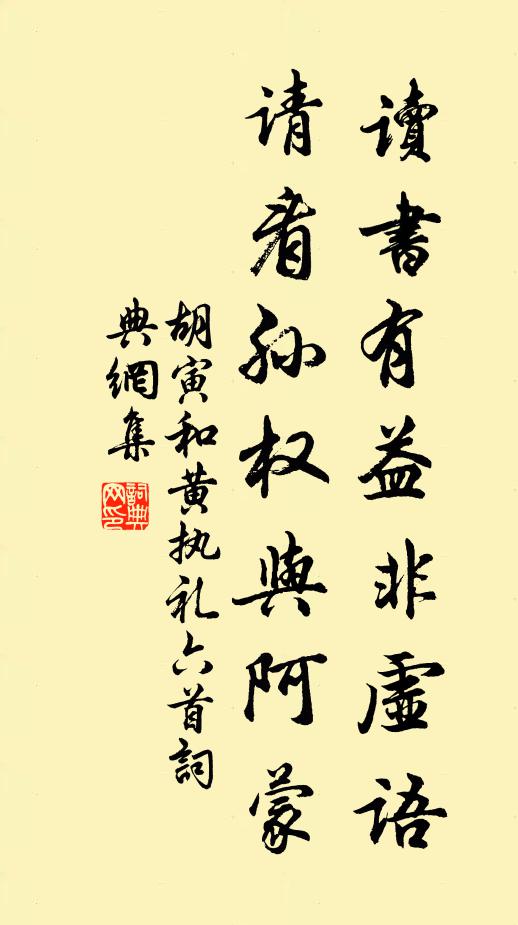 讀書有益非虛语
请看孙权與阿蒙
胡寅和黄执礼六首詞
典網集
詞典
网印